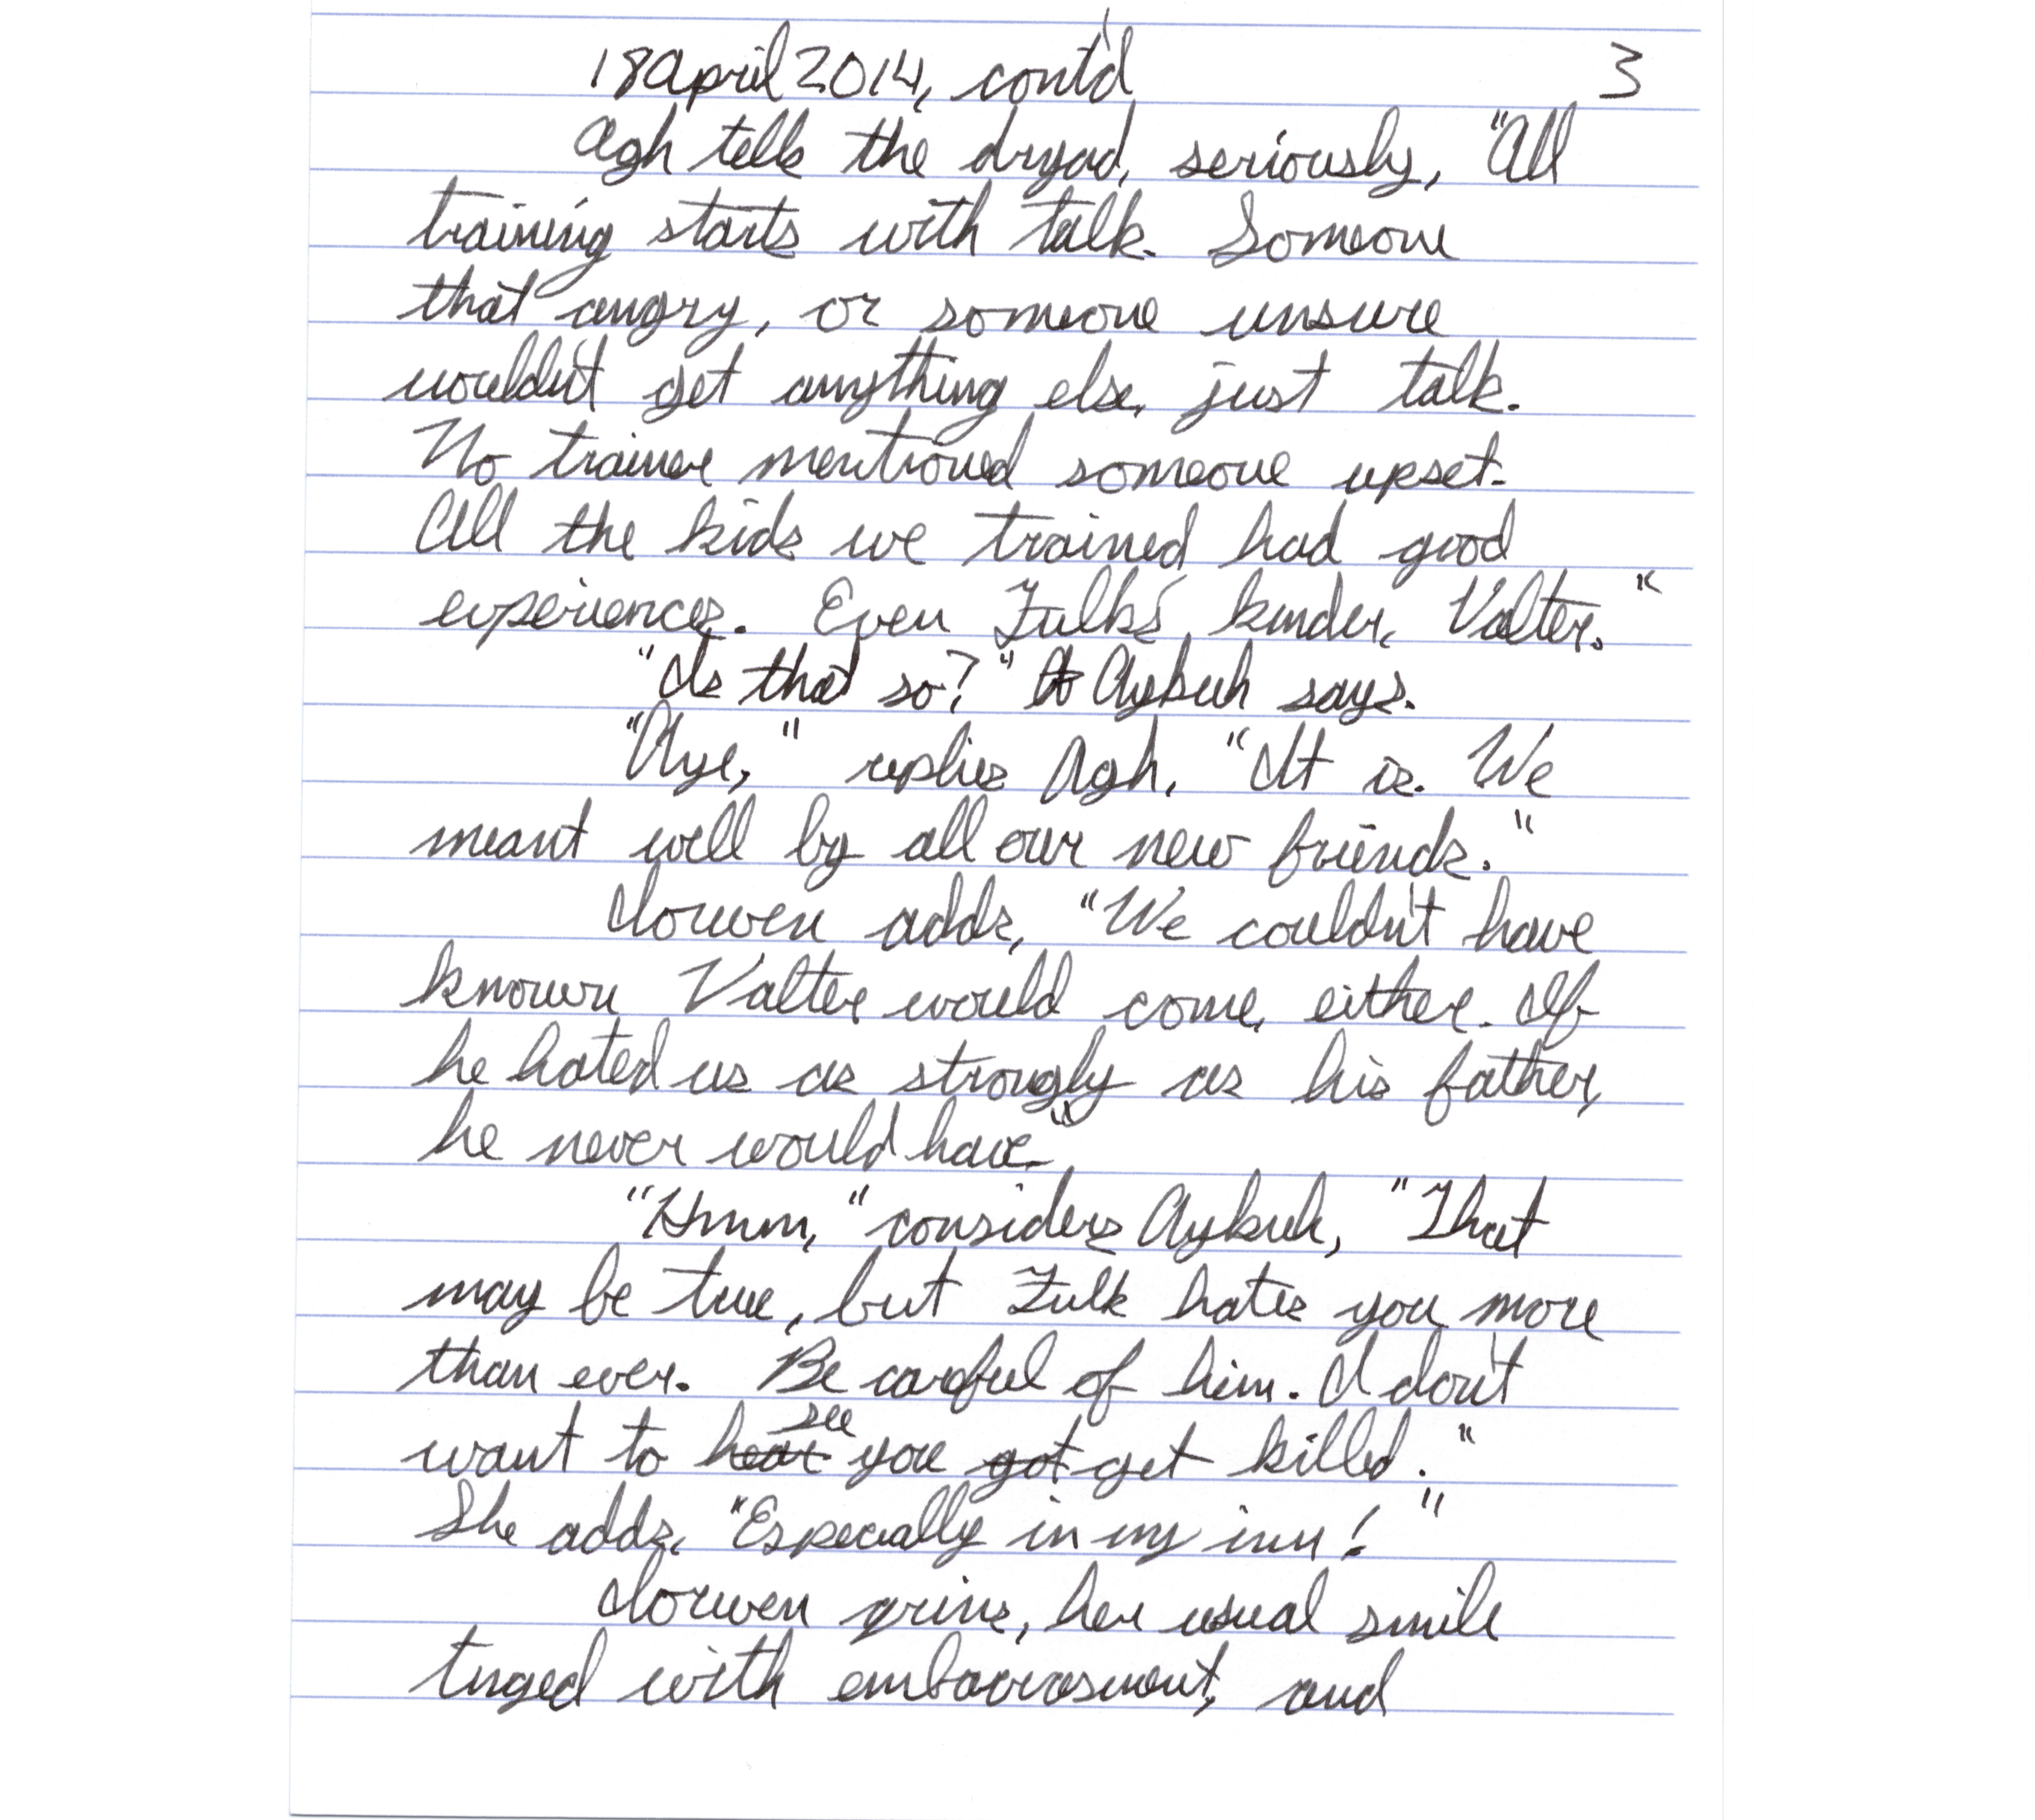 18 April 2014, cont'd 3
Agh tells the dryad, seriously, "All
training starts with talk. Someone
that angry, or someone unsure
wouldn't get anything else, just talk.
No trainer mentioned someone upset.
All the kids we trained had good
experiences. Even Fulk's kinder, Valter."
"Is that so?" Aykuh says.
"Aye," replies Agh, "It is. We
meant well by all our new friends."
Iorwen adds, "We couldn't have
known Valter would come, either. If
he hated us as strongly as his father,
he never would have."
"Hmm," considers Aykuh, "That
may be true, but Fulk hates you more
than ever. Be careful of him. I don't
want to hear see you got get killed."
She adds, "Especially in my inn!"
Iorwen grins, her usual smile
tinged with embarrasment, and